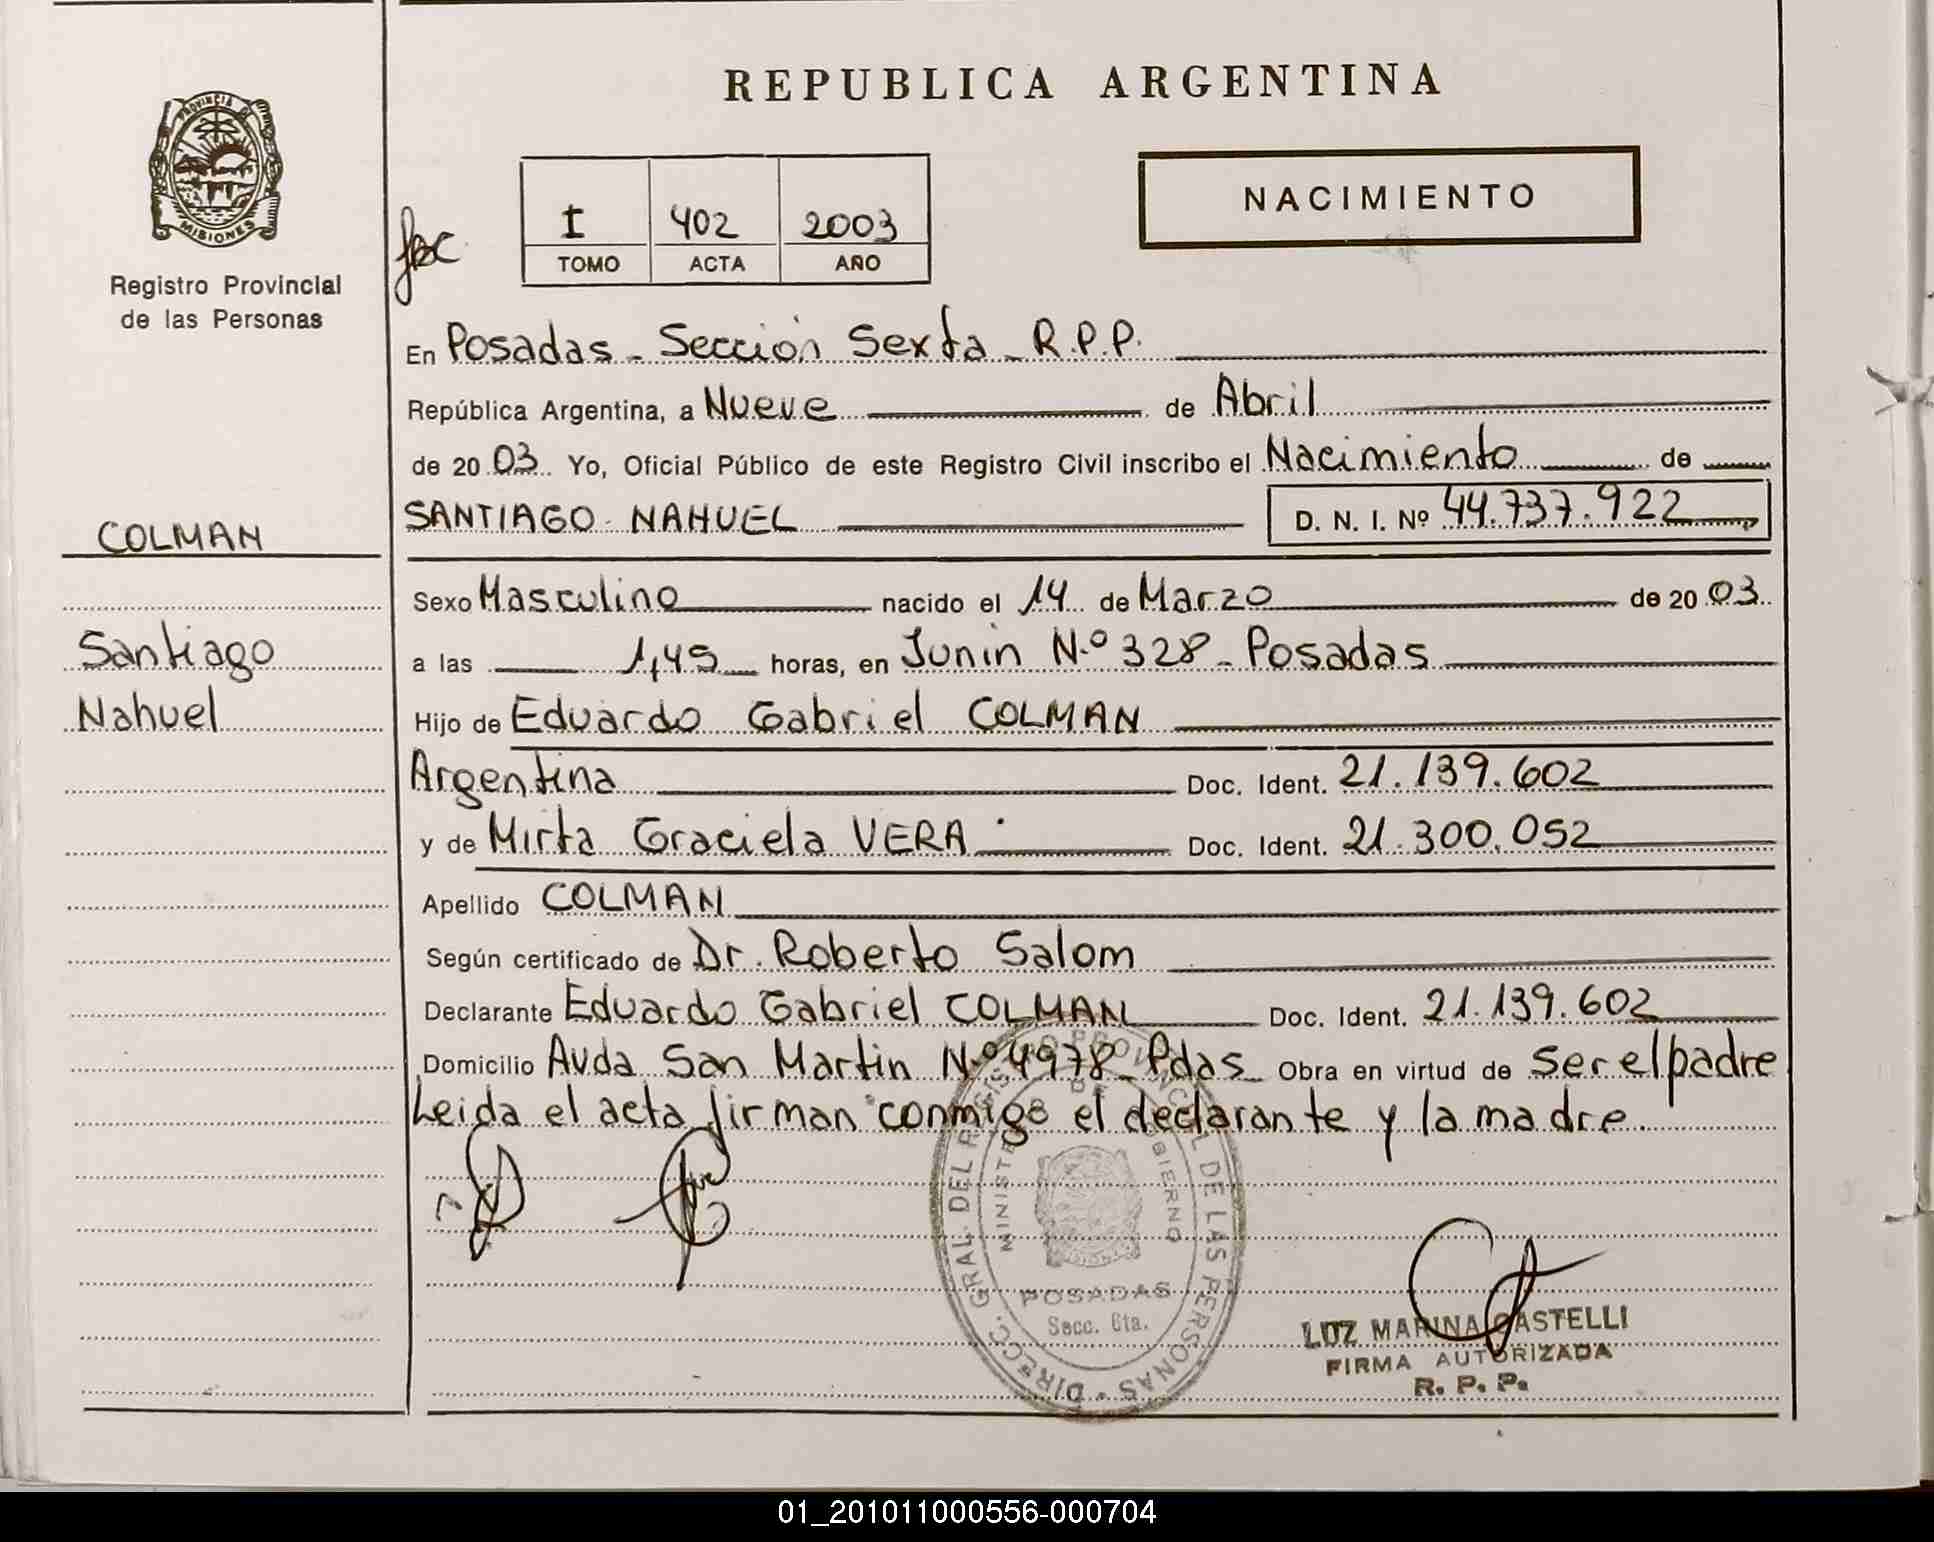 REPUBLICA ARGENTINA
PROVINCIA DE MISIONES
Registro Provincial
de las Personas
I 402 2003
TOMO ACTA AÑO
NACIMIENTO
En Posadas - Sección Sexta - R.P.P.
República Argentina, a Nueve de Abril
de 2003. Yo, Oficial Público de este Registro Civil inscribo el Nacimiento de
COLMAN
SANTIAGO NAHUEL D. N. I. Nº 44.737.922
Sexo Masculino nacido el 14 de Marzo de 2003
Santiago
a las 1,45 horas, en Junin N.º 328 - Posadas
Nahuel
Hijo de Eduardo Gabriel COLMAN
Argentina Doc. Ident. 21.139.602
y de Mirta Graciela VERA Doc. Ident. 21.300.052
Apellido COLMAN
Según certificado de Dr. Roberto Salom
Declarante Eduardo Gabriel COLMAN Doc. Ident. 21.139.602
Domicilio Avda San Martin N.º 4978 - Pdas Obra en virtud de ser el padre
Leida el acta firman conmigo el declarante y la madre.
DIRECC. GRAL. DEL REGISTRO PROVINCIAL DE LAS PERSONAS
MINISTERIO DE GOBIERNO
POSADAS
Secc. 6ta.
LUZ MARINA CASTELLI
FIRMA AUTORIZADA
R. P. P.
01_201011000556-000704